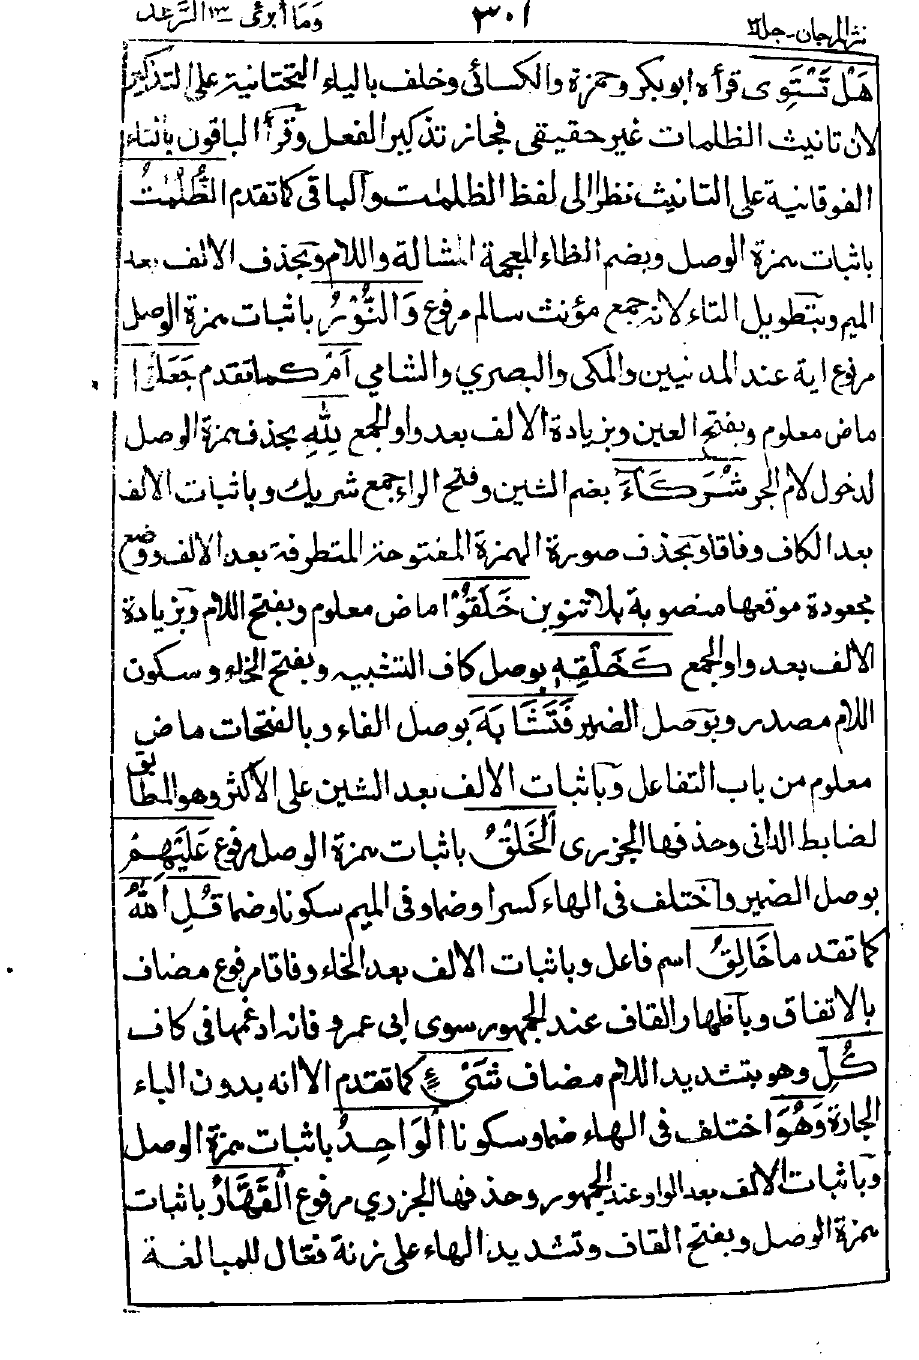 نثر المرجان - جلد ٣
٣٠١
وَمَا أبرئ ١٣ الرَّعد
هَلْ تَسْتَوِى قرأه ابوبكر وحمزة والكسائى وخلف بالياء التحتانية على التذكير
لان تانيث الظلمات غير حقيقى فجاز تذكير الفعل وقرأ الباقون بالتاء
الفوقانية على التانيث نظرا الى لفظ الظلمٰت والباقى كما تقدم الظُّلُمٰتُ
باثبات همزة الوصل وبضم الظاء المعجمة المشالة واللام وبحذف الالف بعد
الميم وبتطويل التاء لانه جمع مؤنث سالم مرفوع وَالنُّوْرُ باثبات همزة الوصل
مرفوع اية عند المدنيين والمكى والبصري والشامي اَمْ كما تقدم جَعَلُوْا
ماض معلوم وبفتح العين وبزيادة الالف بعد واو الجمع لِلّٰهِ بحذف همزة الوصل
لدخول لام الجر شُرَكَآءَ بضم الشين وفتح الراء جمع شريك وباثبات الالف
بعد الكاف وفاقا وبحذف صورة الهمزة المفتوحة المتطرفة بعد الالف ووضع
مجعودة موقعها منصوبة بلا تنوين خَلَقُوْا ماض معلوم وبفتح اللام وبزيادة
الالف بعد واو الجمع كَخَلْقِهٖ بوصل كاف التشبيه وبفتح الخاء وسكون
اللام مصدر وبوصل الضمير فَتَشَابَهَ بوصل الفاء وبالفتحات ماض
معلوم من باب التفاعل وباثبات الالف بعد الشين على الأكثر وهو المطابق
لضابط الدانى وحذفها الجزرى الْخَلْقُ باثبات همزة الوصل مرفوع عَلَيْهِمْ
بوصل الضمير واختلف فى الهاء كسرا وضما وفى الميم سكونا وضما قُلِ اللّٰهُ
كما تقدما خَالِقُ اسم فاعل وباثبات الالف بعد الخاء وفاقا مرفوع مضاف
بالاتفاق وباظهار القاف عند الجمهور سوى ابى عمرو فانه ادغمها فى كاف
كُلِّ وهو بتشديد اللام مضاف شَىْءٍ كما تقدم الا انه بدون الباء
الجارة وَهُوَ اختلف فى الهاء ضما وسكونا الْوَاحِدُ باثبات همزة الوصل
وباثبات الالف بعد الواو عند الجمهور وحذفها الجزري مرفوع الْقَهَّارُ باثبات
همزة الوصل وبفتح القاف وتشديد الهاء على زنة فعال للمبالغة